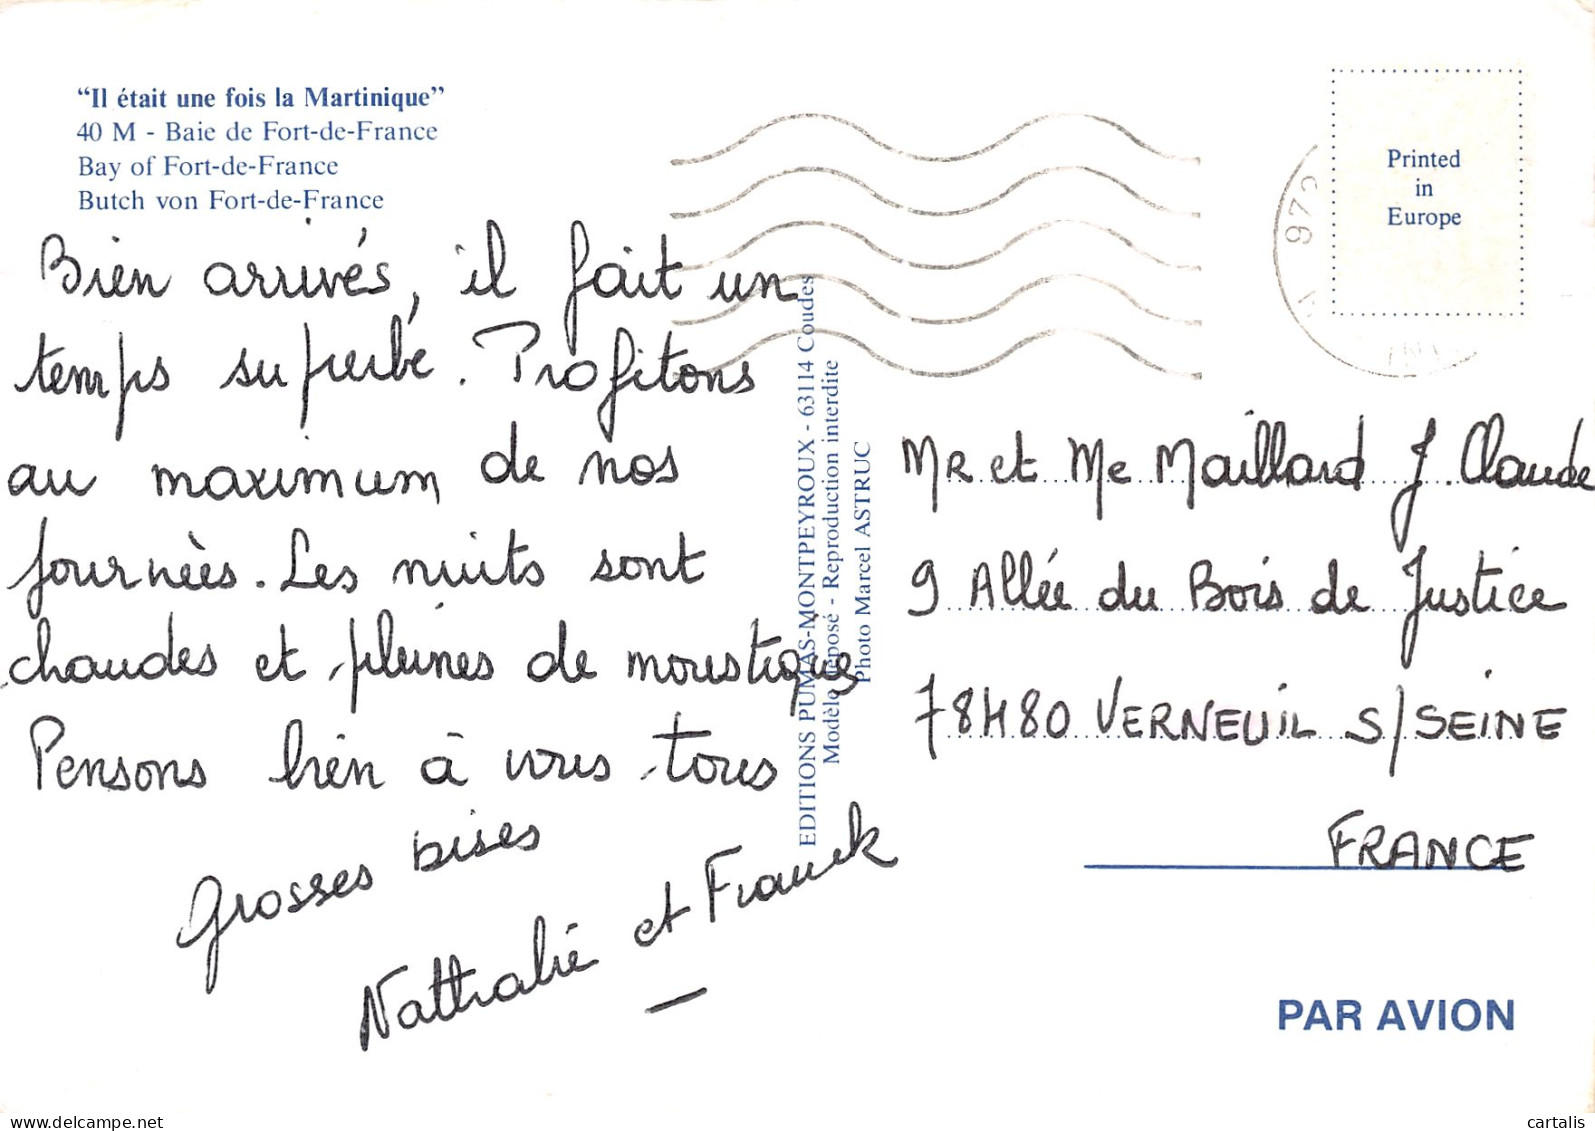 "Il était une fois la Martinique"
40 M - Baie de Fort-de-France
Bay of Fort-de-France
Butch von Fort-de-France
Printed
in
Europe
972
Bien arrivés, il fait un
temps superbe. Profitons
au maximum de nos
journèes. Les nuits sont
chaudes et pleines de moustiques
Pensons bien à vous tous
Grosses bises
Nathalie et Franck
EDITIONS PUMAS-MONTPEYROUX - 63114 Coudes
Modèle déposé - Reproduction interdite
Photo Marcel ASTRUC
MR et Me Maillard J. Claude
9 Allée du Bois de Justice
78480 VERNEUIL S/SEINE
FRANCE
PAR AVION
delcampe.net
cartalis